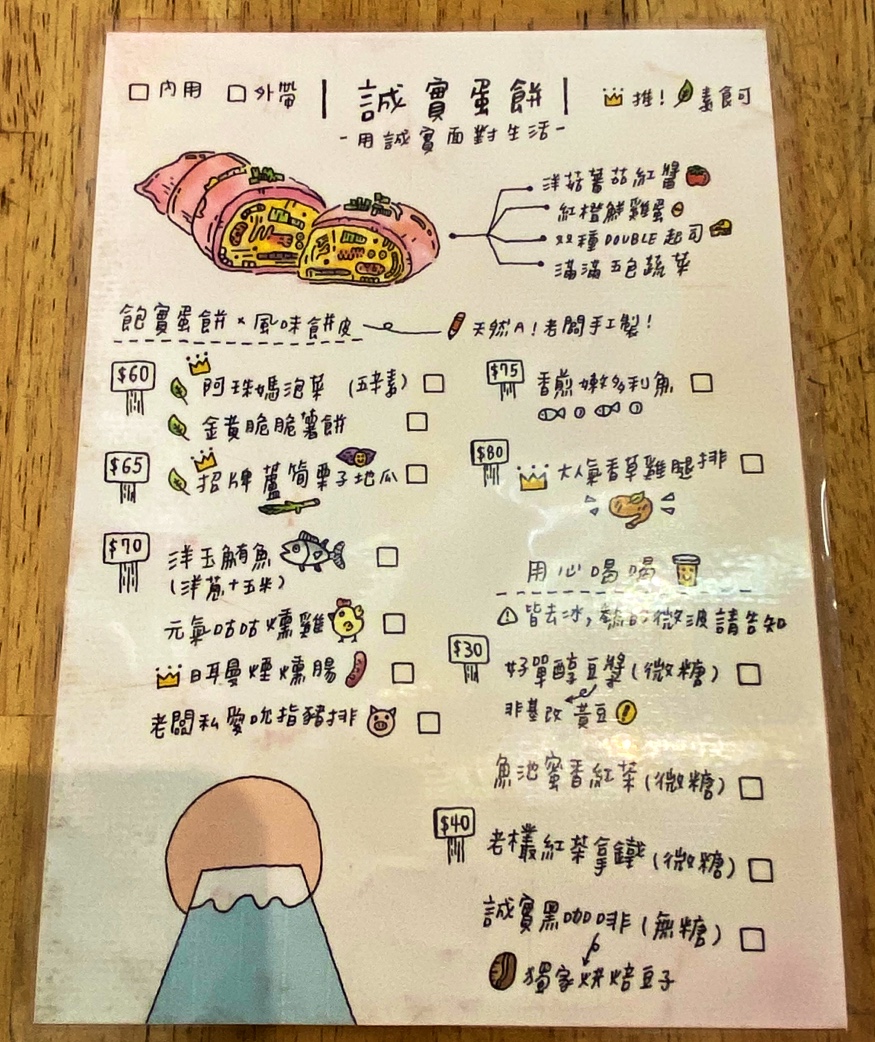 □ 內用 □ 外帶 | 誠實蛋餅 | 推! 素食可
-用誠實面對生活-
洋菇蕃茄紅醬
紅橙鮮雞蛋
双種DOUBLE起司
滿滿五色蔬菜
飽實蛋餅 × 風味餅皮
天然A!老闆手工製!
$60
阿珠媽泡菜 (五辛素) □
金黃脆脆薯餅 □
$65
招牌蘆筍栗子地瓜 □
$70
洋玉鮪魚 □
(洋蔥+玉米)
元氣咕咕燻雞 □
日耳曼煙燻腸 □
老闆私愛吮指豬排 □
$75
香煎嫩多利魚 □
$80
大人氣香草雞腿排 □
用心喝喝
皆去冰,熱的微波請告知
$30
好單醇豆漿(微糖) □
非基改黃豆
魚池蜜香紅茶(微糖) □
$40
老欉紅茶拿鐵(微糖) □
誠實黑咖啡(無糖) □
獨家烘焙豆子